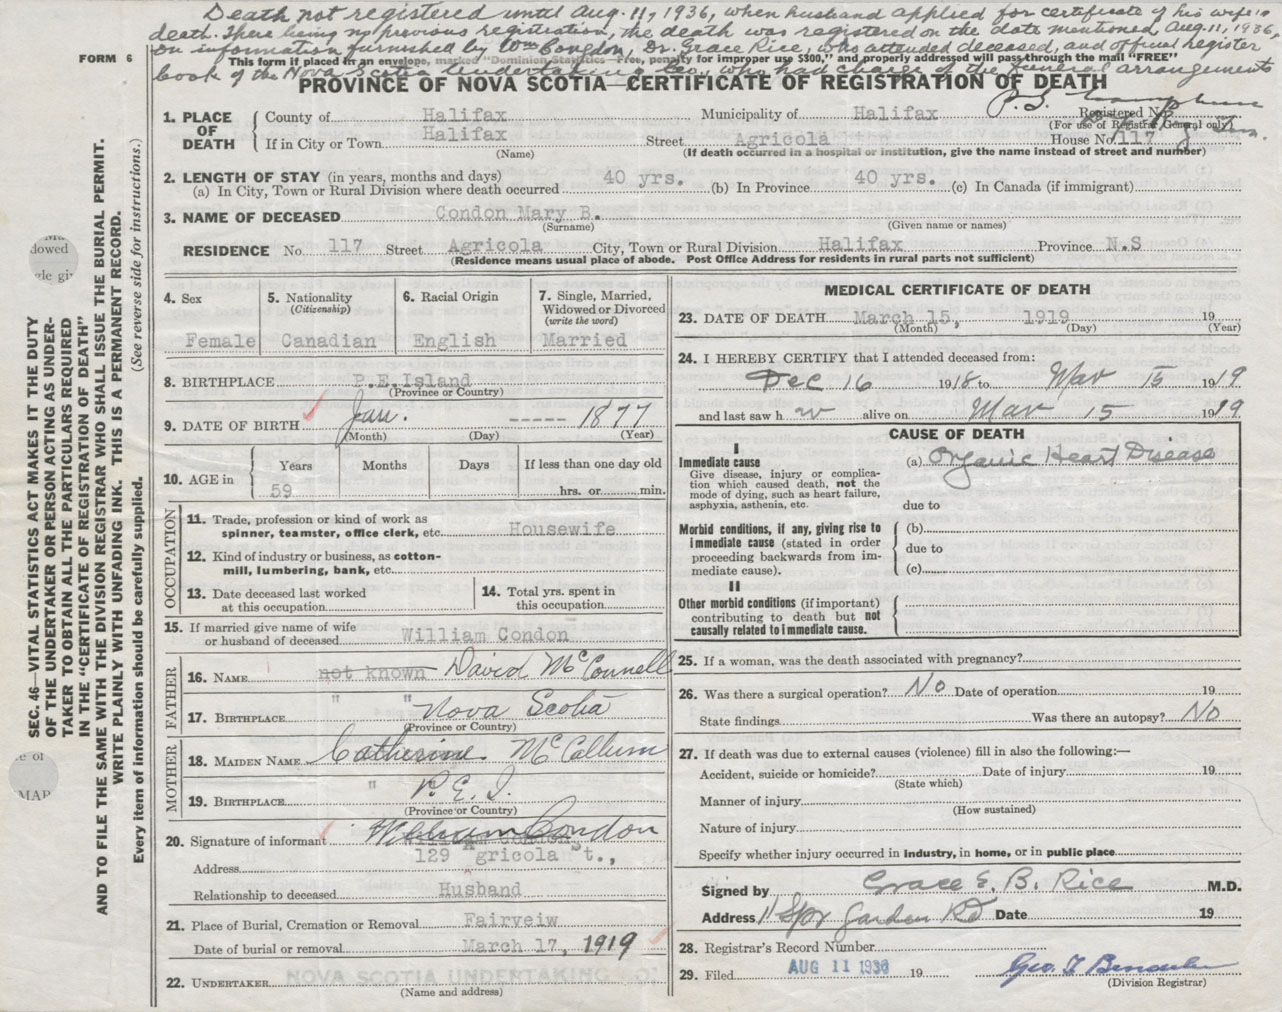 Death not registered until Aug. 11, 1936, when husband applied for certificate of his wife's
death. There being no previous registration, the death was registered on the date mentioned, Aug. 11, 1936,
on information furnished by Wm Condon, Dr. Grace Rice, who attended deceased, and official register
book of the Nova Scotia Undertaking Co., who had charge of the funeral arrangements
FORM 6
This form if placed in an envelope, marked "Dominion Statistics—Free, penalty for improper use $300," and properly addressed will pass through the mail "FREE"
PROVINCE OF NOVA SCOTIA—CERTIFICATE OF REGISTRATION OF DEATH
1. PLACE OF DEATH
County of Halifax Municipality of Halifax Registered No.
(For use of Registrar General only)
If in City or Town Halifax Street Agricola House No. 117
(Name) (If death occurred in a hospital or institution, give the name instead of street and number)
2. LENGTH OF STAY (in years, months and days)
(a) In City, Town or Rural Division where death occurred 40 yrs. (b) In Province 40 yrs. (c) In Canada (if immigrant)
3. NAME OF DECEASED Condon Mary B.
(Surname) (Given name or names)
RESIDENCE No. 117 Street Agricola City, Town or Rural Division Halifax Province N.S
(Residence means usual place of abode. Post Office Address for residents in rural parts not sufficient)
4. Sex
Female
5. Nationality
(Citizenship)
Canadian
6. Racial Origin
English
7. Single, Married,
Widowed or Divorced
(write the word)
Married
8. BIRTHPLACE P.E.Island
(Province or Country)
9. DATE OF BIRTH Jan. ----- 1877
(Month) (Day) (Year)
10. AGE in
Years Months Days If less than one day old
59 hrs. or min.
OCCUPATION
11. Trade, profession or kind of work as
spinner, teamster, office clerk, etc. Housewife
12. Kind of industry or business, as cotton-
mill, lumbering, bank, etc.
13. Date deceased last worked
at this occupation
14. Total yrs. spent in
this occupation
15. If married give name of wife
or husband of deceased William Condon
FATHER
16. NAME not known David McConnell
17. BIRTHPLACE " " Nova Scotia
(Province or Country)
MOTHER
18. MAIDEN NAME Catherine McCallum
19. BIRTHPLACE " P.E.I.
(Province or Country)
20. Signature of informant William Condon
William Condon
Address 129 Agricola St.,
Relationship to deceased Husband
21. Place of Burial, Cremation or Removal Fairveiw
Date of burial or removal March 17, 1919
22. UNDERTAKER NOVA SCOTIA UNDERTAKING CO.
(Name and address)
MEDICAL CERTIFICATE OF DEATH
23. DATE OF DEATH March 15, 1919 19
(Month) (Day) (Year)
24. I HEREBY CERTIFY that I attended deceased from:
Dec 16 1918 to Mar 15 1919
and last saw h er alive on Mar 15 1919
CAUSE OF DEATH
I
Immediate cause
Give disease, injury or complica-
tion which caused death, not the
mode of dying, such as heart failure,
asphyxia, asthenia, etc.
(a) Organic Heart Disease
due to
Morbid conditions, if any, giving rise to
immediate cause (stated in order
proceeding backwards from im-
mediate cause).
(b)
due to
(c)
II
Other morbid conditions (if important)
contributing to death but not
causally related to immediate cause.
25. If a woman, was the death associated with pregnancy?
26. Was there a surgical operation? No Date of operation 19
State findings Was there an autopsy? No
27. If death was due to external causes (violence) fill in also the following:—
Accident, suicide or homicide? Date of injury 19
(State which)
Manner of injury
(How sustained)
Nature of injury
Specify whether injury occurred in industry, in home, or in public place
Signed by Grace E. B. Rice M.D.
Address 11 Spr Garden Rd Date 19
28. Registrar's Record Number
29. Filed AUG 11 1936 19
(Division Registrar)
SEC. 46—VITAL STATISTICS ACT MAKES IT THE DUTY
OF THE UNDERTAKER OR PERSON ACTING AS UNDER-
TAKER TO OBTAIN ALL THE PARTICULARS REQUIRED
IN THE "CERTIFICATE OF REGISTRATION OF DEATH"
AND TO FILE THE SAME WITH THE DIVISION REGISTRAR WHO SHALL ISSUE THE BURIAL PERMIT.
WRITE PLAINLY WITH UNFADING INK. THIS IS A PERMANENT RECORD.
Every item of information should be carefully supplied. (See reverse side for instructions.)